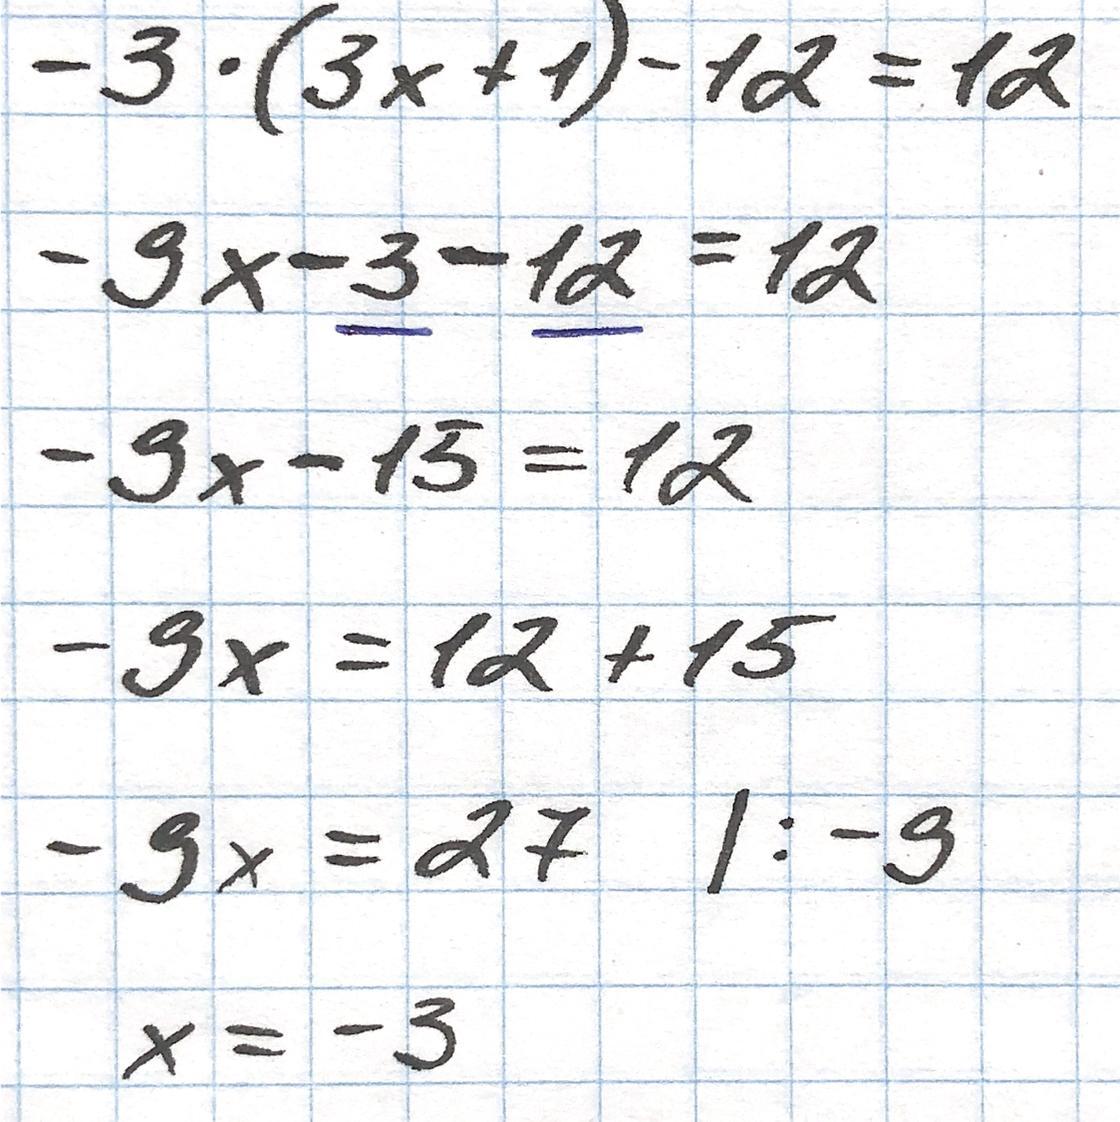 -3·(3x+1)-12=12
-9x-3-12=12
-9x-15=12
-9x=12+15
-9x=27 |:-9
x=-3